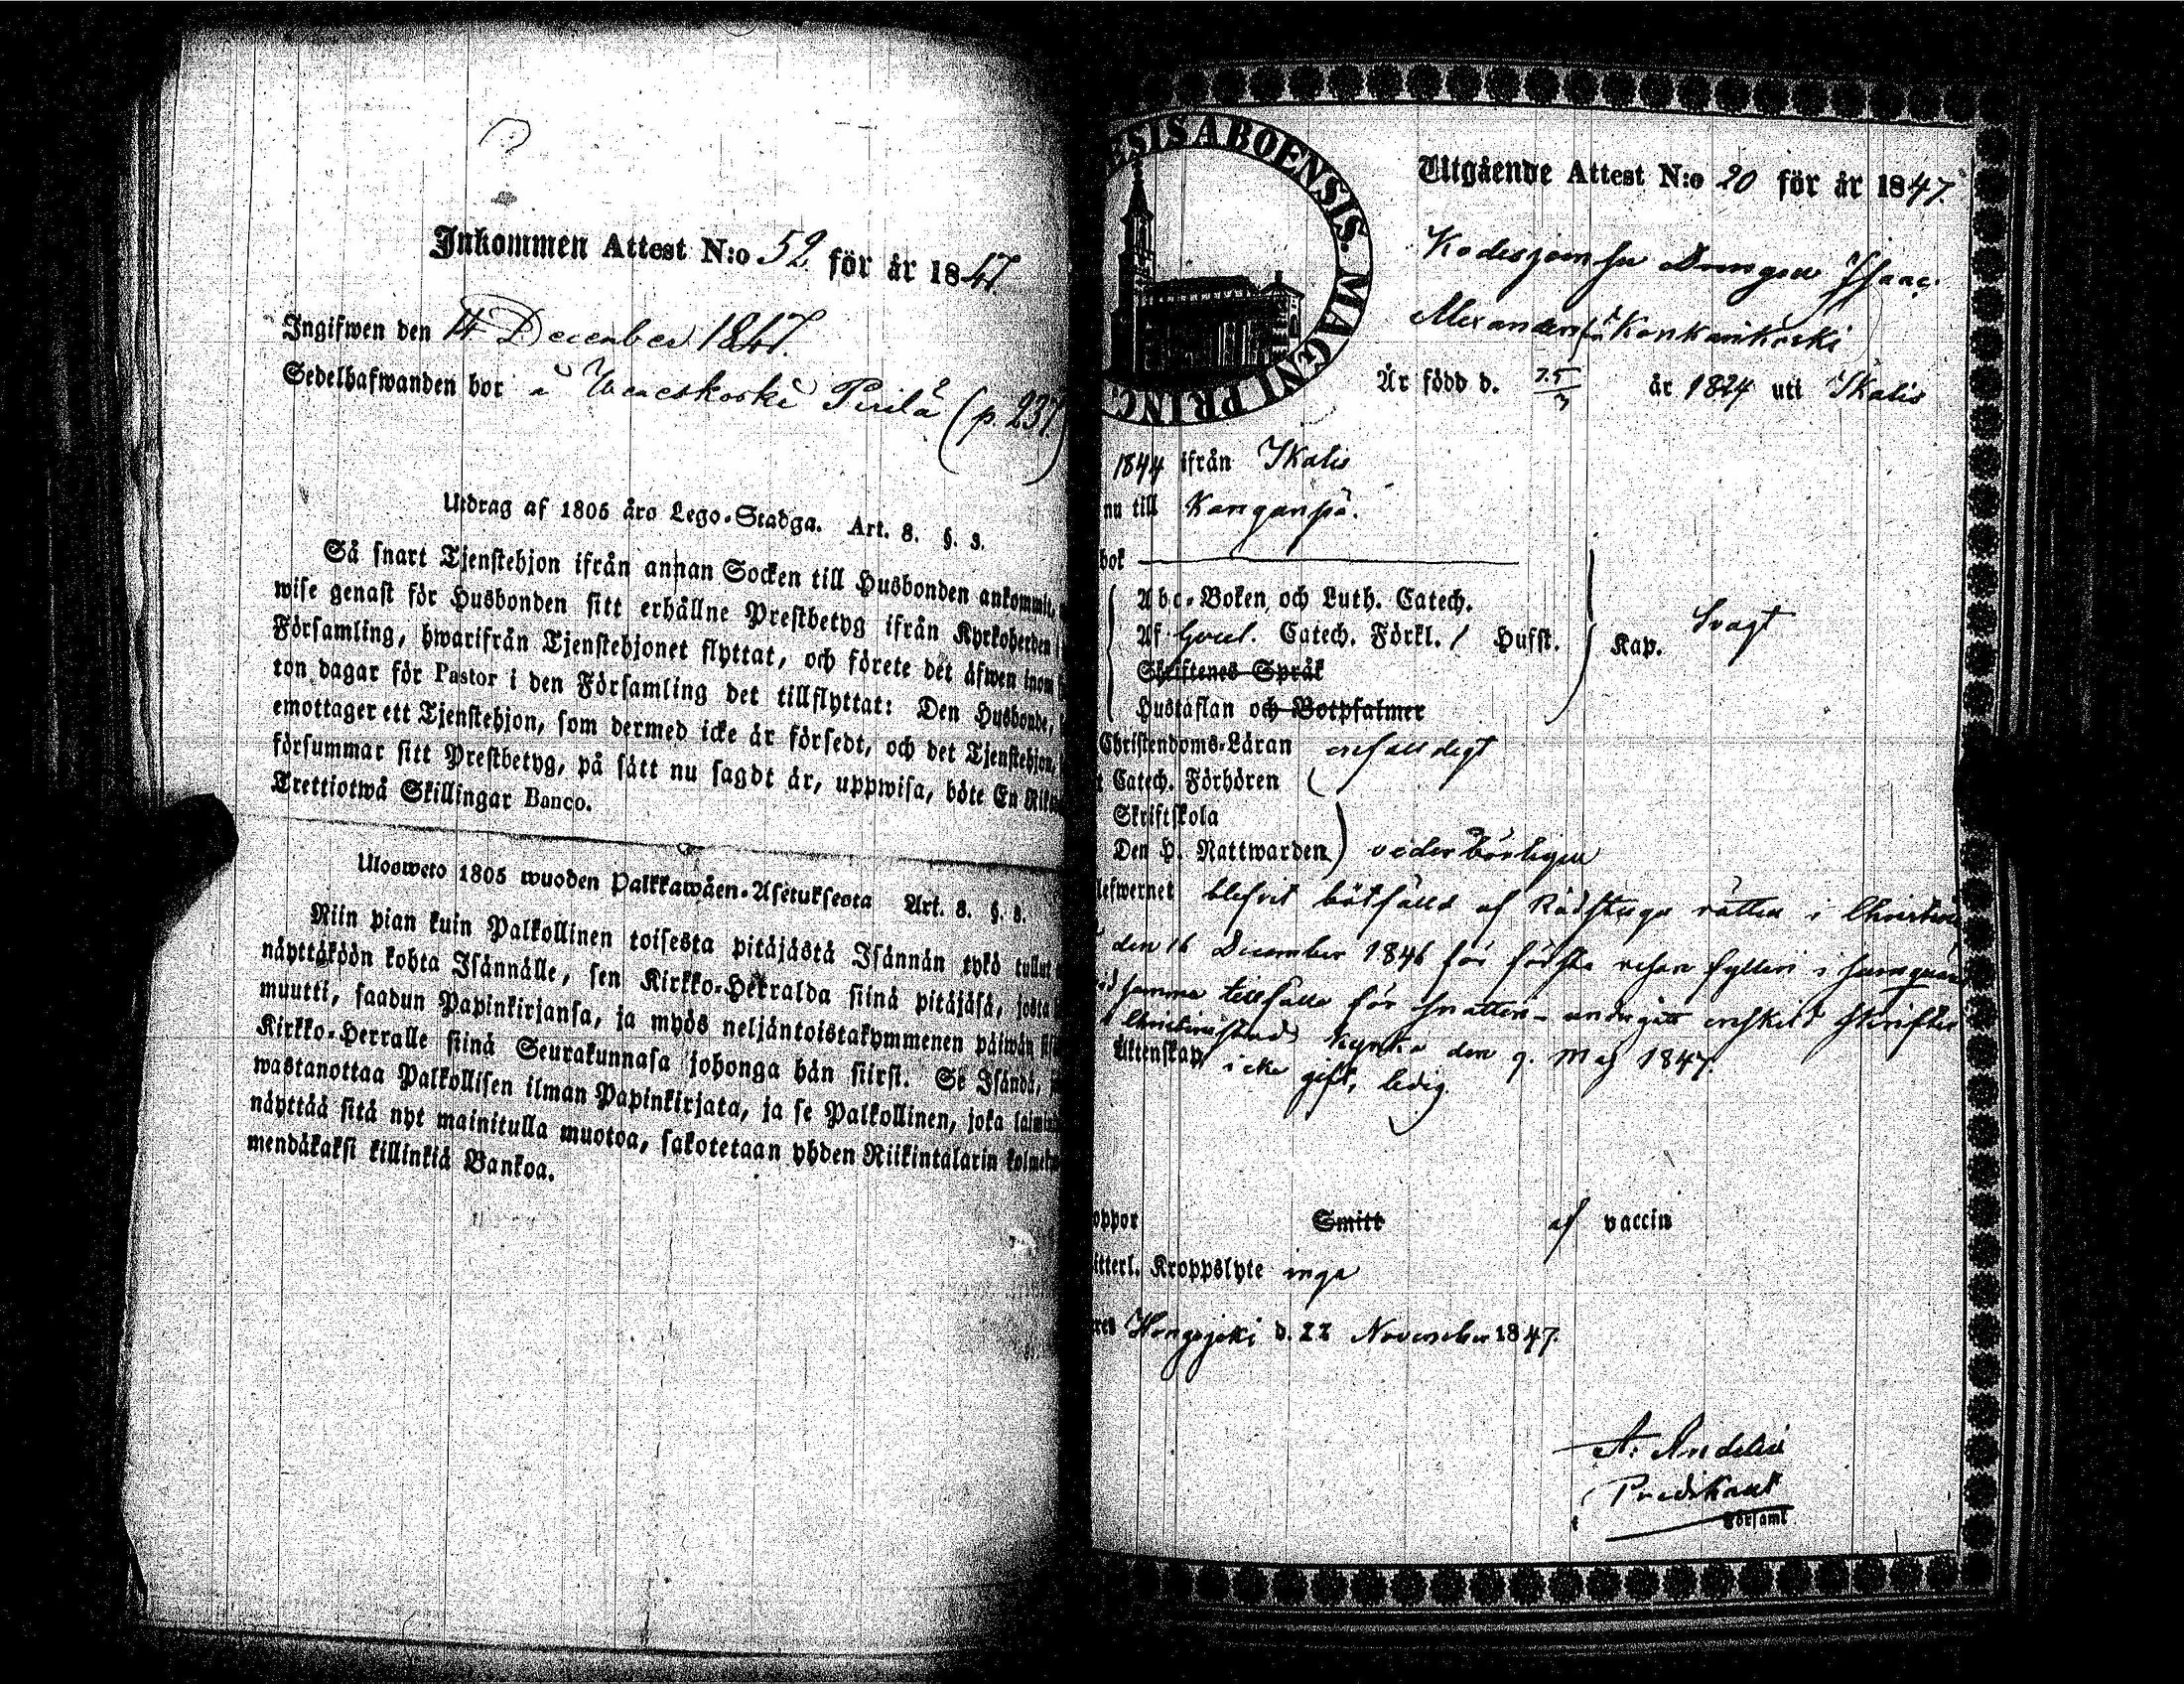 Inkommen Attest N:o 52 för år 1847.
Ingifwen den 14 December 1847.
Sedelhafwanden bor i Pirilä (p. 237.)
Utdrag af 1805 års Lego-Stadga. Art. 8. §. 3.
Så snart Tjenstehjon ifrån annan Socken till Husbonden ankommit,
wise genast för Husbonden sitt erhållne Prestbetyg ifrån Kyrkoherden i
Församling, hwarifrån Tjenstehjonet flyttat, och förete det äfwen inom
ton dagar för Pastor i den Församling det tillflyttat: Den Husbonde,
emottager ett Tjenstehjon, som dermed icke är försedt, och det Tjenstehjon,
försummar sitt Prestbetyg, på sätt nu sagdt är, uppwisa, böte En
Trettiotwå Skillingar Banco.
Ulosweto 1805 wuoden Palkkawäen-Asetuksesta Art. 8. §. 3.
Niin pian kuin Palkollinen toisesta pitäjästä Isännän tykö tullut
näyttäköön kohta Isännälle, sen Kirkko-Herralda siinä pitäjäsä, josta
muutti, saadun Papinkirjansa, ja myös neljäntoistakymmenen päiwän
Kirkko-Herralle siinä Seurakunnasa johonga hän siirsi. Se Isändä,
wastanottaa Palkollisen ilman Papinkirjata, ja se Palkollinen, joka
näyttää sitä nyt mainitulla muotoa, sakotetaan yhden Riikintalarin
mendäkaksi killinkiä Bankoa.
SIS ABOENSIS. MAGNI PRINC.
Utgående Attest N:o 20 för år 1847.
Drengen Isaac
Alexandersson Kankarikoski
Är född d. 25/3 år 1824 uti Ikalis
1844 ifrån Ikalis
nu till Kanganpä.
bok
Abc-Boken och Luth. Catech.
Af Catech. Förkl. / Husst. Kap. Svagt
Skriftenes Språk
Hustaflan och Botpsalmer
Christendoms-Läran enfalldigt
Catech. Förhören
Skriftskola
Den H. Nattwarden vederbörligen
lefwernet blifvit bötfälld af Rådstugu rätten i
den 16 December 1846 för första resan fylleri i
samma tillfälle för snatteri undergått enskild skrift
Christinestads Kyrka den 9. Maj 1847.
Äktenskap icke gift, ledig.
oppor Smitt af vaccin
itterl. Kroppslyte inga
Hongojoki d. 22 November 1847.
A.
Predikant
Församl.